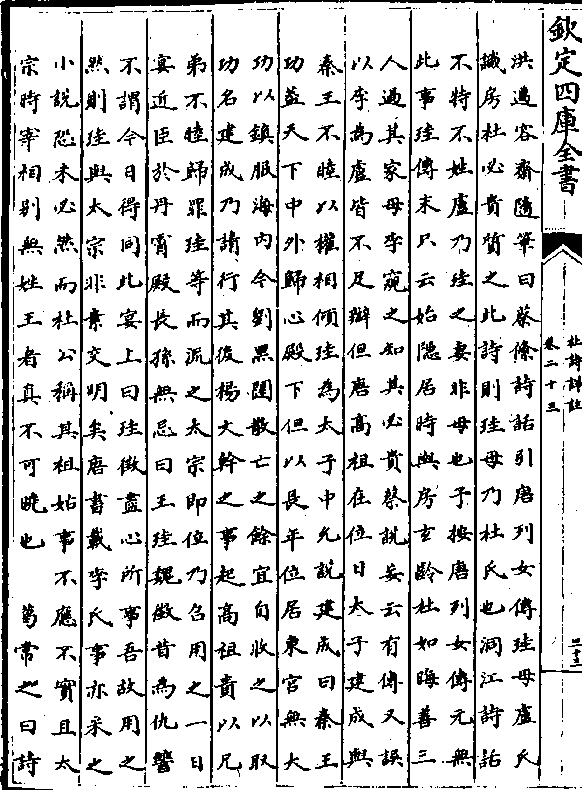 欽定四庫全書
杜詩詳註
卷二十三
洪邁容齋隨筆曰蔡絛詩話引唐列女傳珪母盧氏
識房杜必貴質之此詩則珪母乃杜氏也洞江詩話
不特不姓盧乃珪之妻非母也予按唐列女傳元無
此事珪傳末只云始隱居時與房玄齡杜如晦善三
人過其家母李窺之知其必貴蔡說妄云有傳又誤
以李為盧皆不足辨但唐高祖在位日太子建成與
秦王不睦以權相傾珪為太子中允說建成曰秦王
功蓋天下中外歸心殿下但以長年位居東宮無大
功以鎮服海內今劉黑闥散亡之餘宜自收之以取
功名建成乃請行其後楊文幹之事起高祖責以兄
弟不睦歸罪珪等而流之太宗即位乃召用之一日
宴近臣於丹霄殿長孫無忌曰王珪魏徵昔為仇讐
不謂今日得同此宴上曰珪徵盡心所事吾故用之
然則珪與太宗非素交明矣唐書載李氏事亦采之
小說恐未必然而杜公稱其祖姑事不應不實且太
宗時宰相別無姓王者真不可曉也 葛常之曰詩